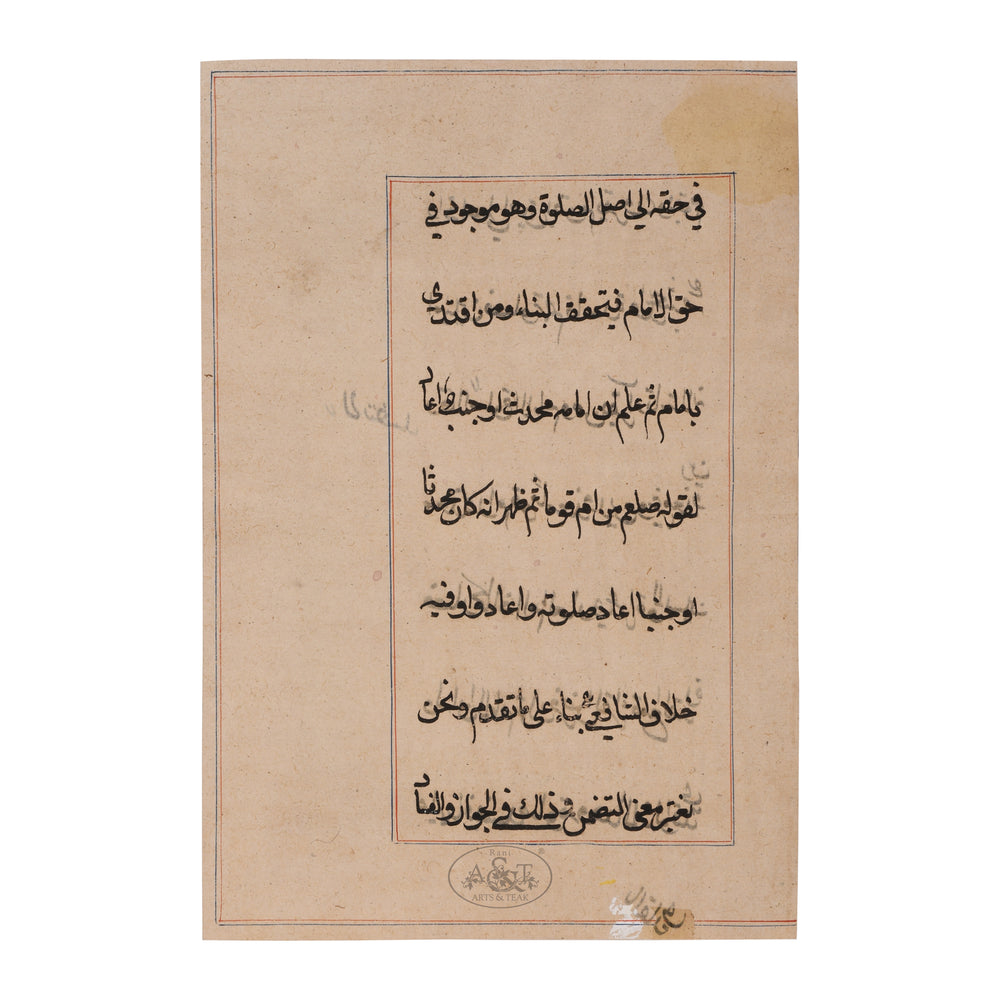 في حقه الى اصل الصلوة وهو موجود في
حق الامام فيتحقق البناء ومن اقتدى
بامام ثم علم ان امامه محدث او جنب اعاد
لقوله صلعم من ام قوما ثم ظهر انه كان محدثا
او جنبا اعاد صلوته واعادوا وفيه
خلاف الشافعي بناء على ما تقدم ونحن
نعتبر معنى التضمن وذلك في الجواز والفساد
Rani
A&T
ARTS & TEAK